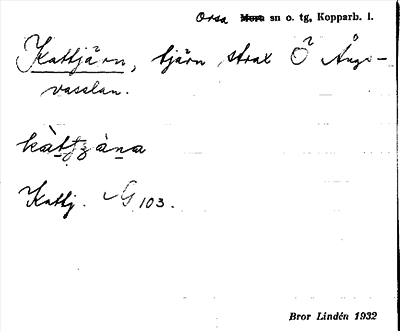 Orsa Mora sn o. tg, Kopparb. l.
Kattjärn, tjärn strax Ö Ång-
vasslan.
Kattj. G 103.
Bror Lindén 1932